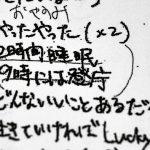 おやすみ
やったやった(×2)
時間睡眠
9時には登庁
どんないいことあるだ
生きていければLucky